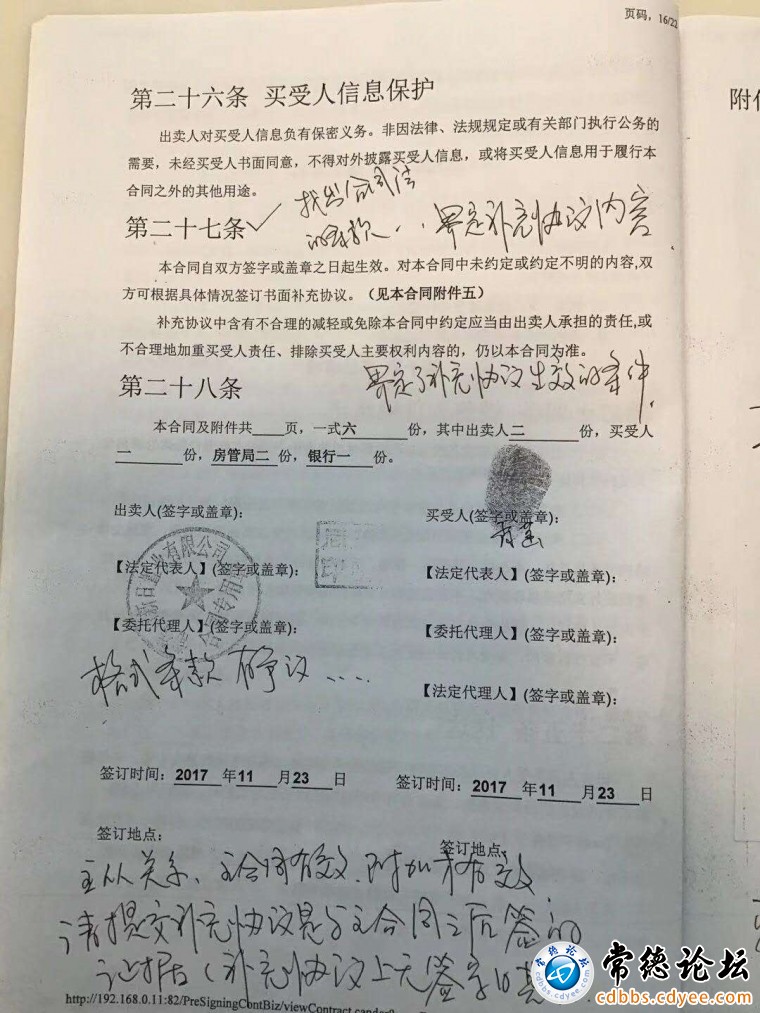 页码，16/22
第二十六条 买受人信息保护
出卖人对买受人信息负有保密义务。非因法律、法规规定或有关部门执行公务的
需要，未经买受人书面同意，不得对外披露买受人信息，或将买受人信息用于履行本
合同之外的其他用途。
找出合同法
第二十七条 的条款、、界定补充协议内容
本合同自双方签字或盖章之日起生效。对本合同中未约定或约定不明的内容,双
方可根据具体情况签订书面补充协议。（见本合同附件五）
补充协议中含有不合理的减轻或免除本合同中约定应当由出卖人承担的责任,或
不合理地加重买受人责任、排除买受人主要权利内容的，仍以本合同为准。
第二十八条 界定了补充协议生效的条件
本合同及附件共____页，一式六____份，其中出卖人二____份，买受人
二____份，房管局二 份，银行一 份。
出卖人(签字或盖章)：
买受人(签字或盖章)：
有限公司
合同专用
【法定代表人】(签字或盖章)：
【法定代表人】(签字或盖章)：
【委托代理人】(签字或盖章)：
【委托代理人】(签字或盖章)：
格式条款 有争议....
【法定代理人】(签字或盖章)：
签订时间：2017 年11 月23 日
签订时间：2017 年11 月23 日
签订地点：
签订地点：
主从关系、主合同有效、附加才有效
请提交补充协议是与主合同之后签的
证据（补充协议上无签字日
http://192.168.0.11:82/PreSigningContBiz/viewContract
附
常德论坛
cdbbs.cdyee.com